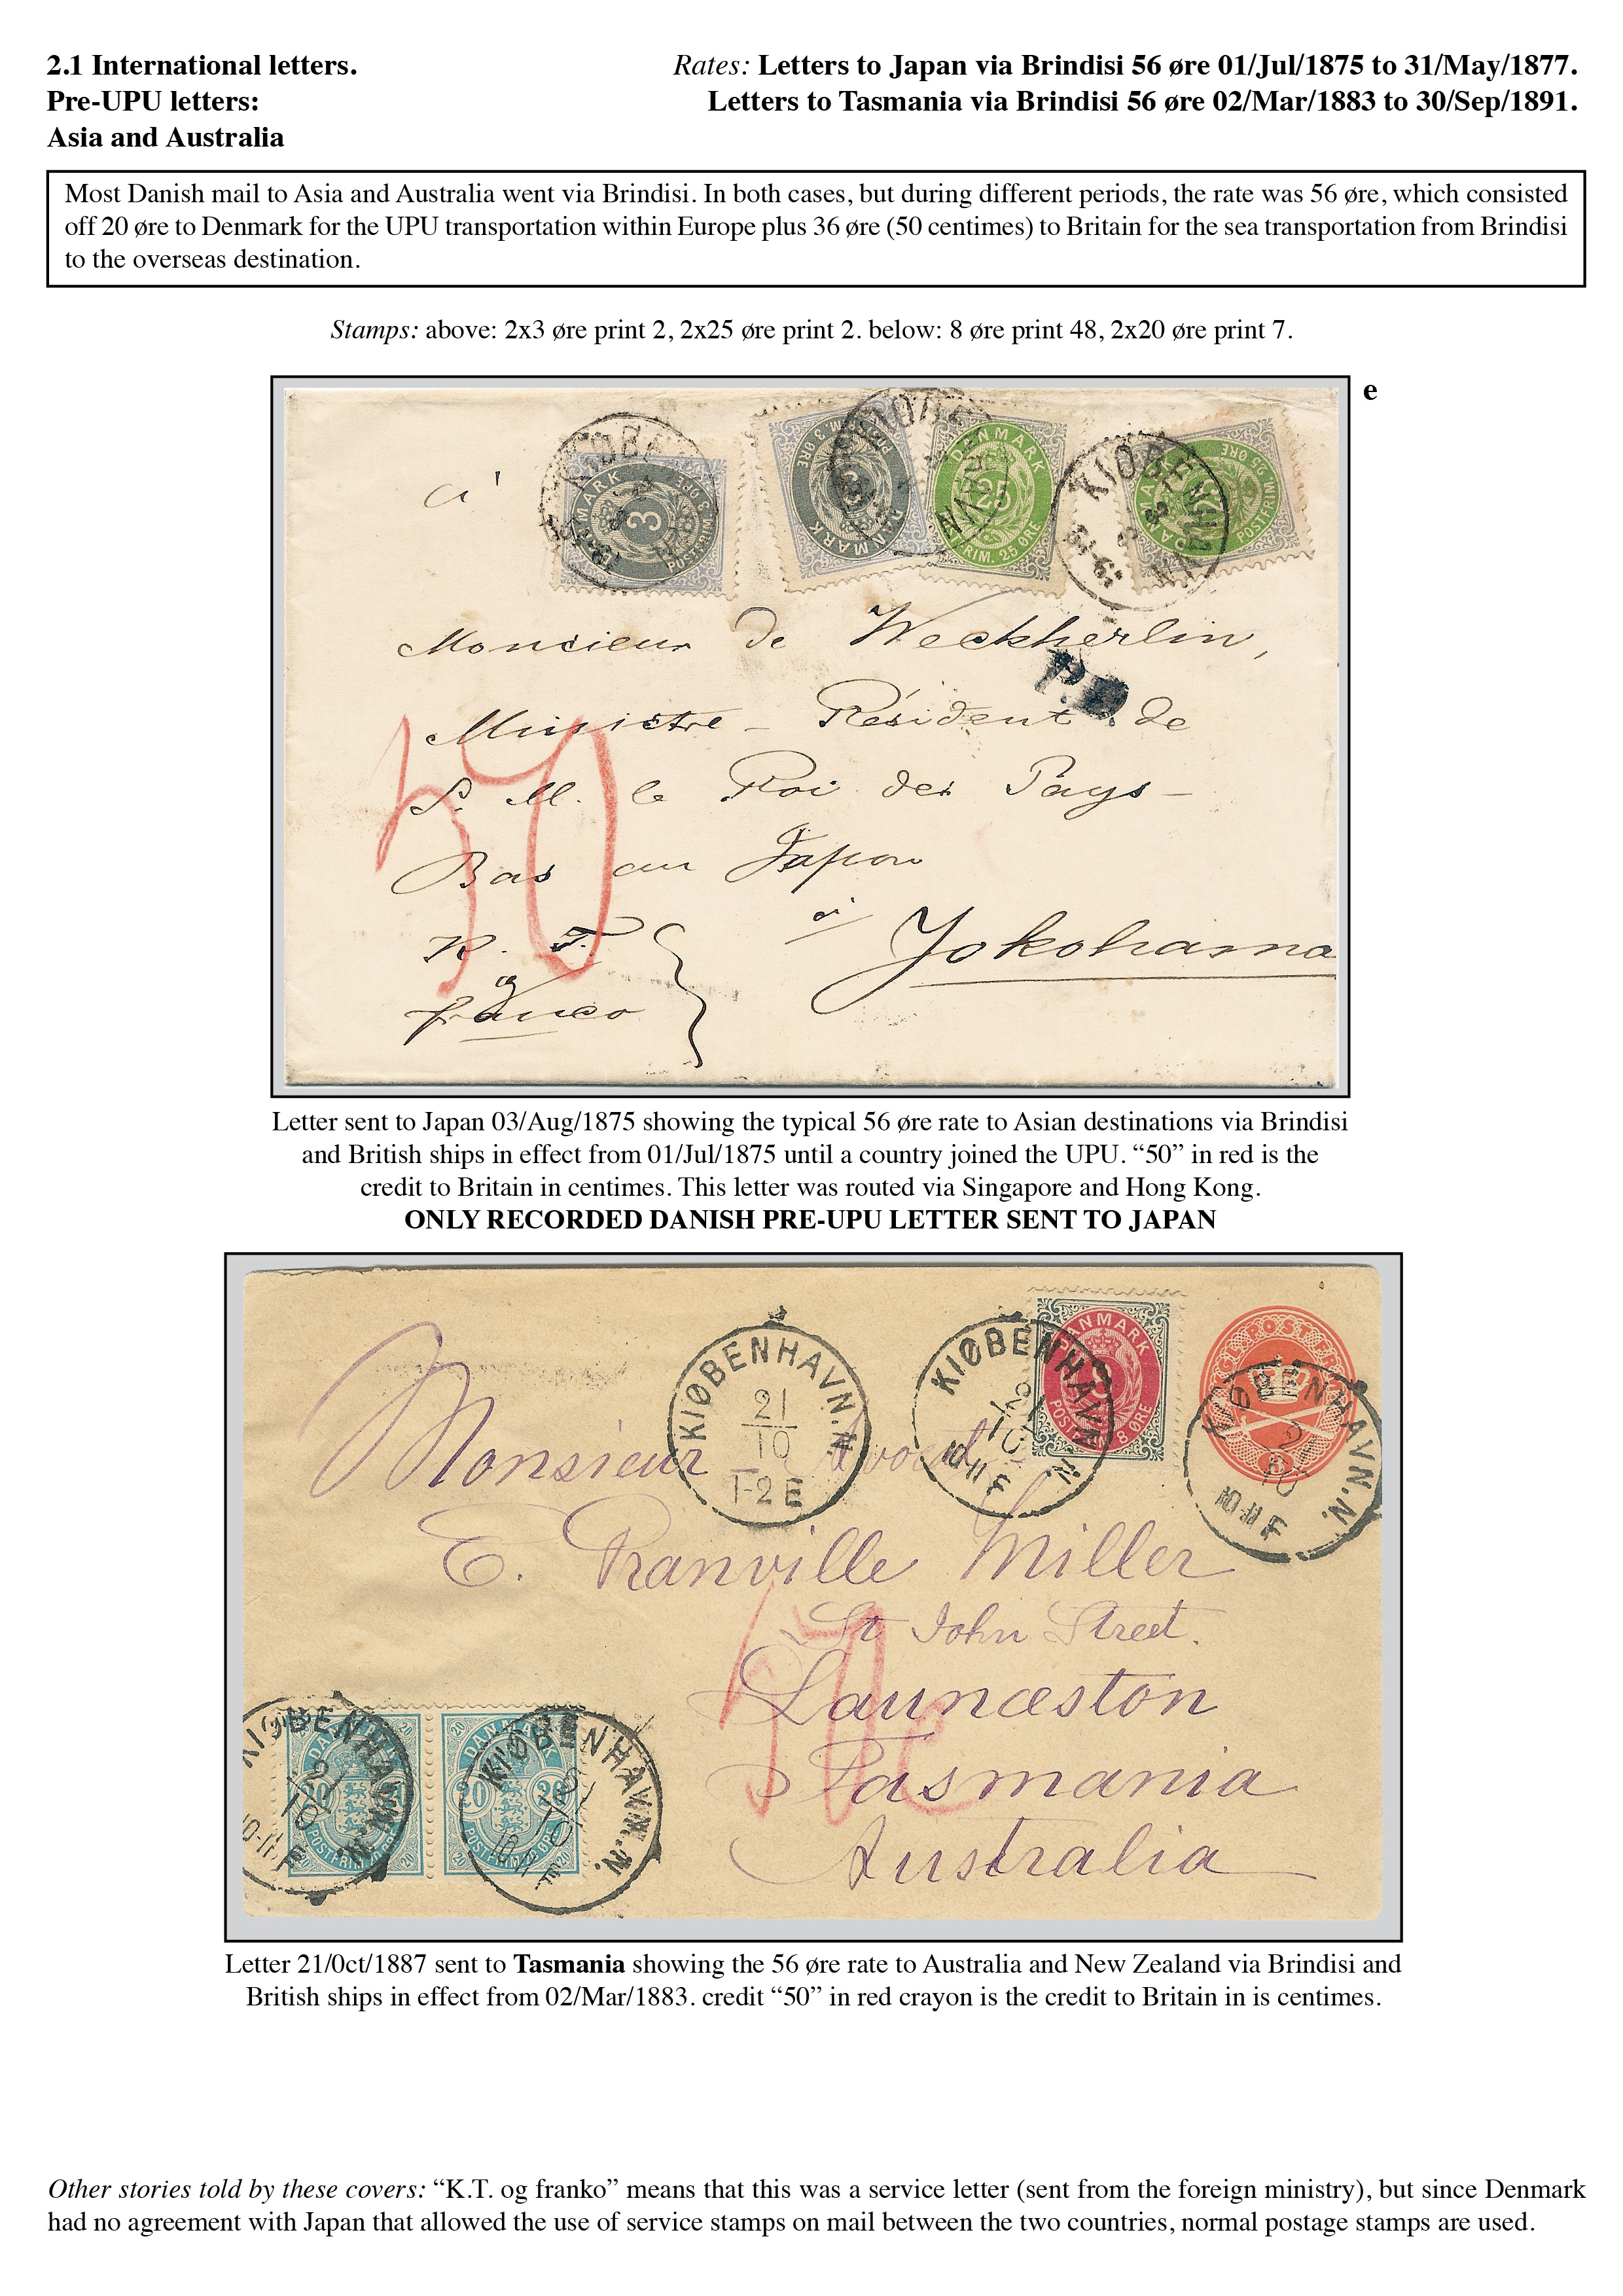 2.1 International letters.
Pre-UPU letters:
Asia and Australia
Rates: Letters to Japan via Brindisi 56 øre 01/Jul/1875 to 31/May/1877.
Letters to Tasmania via Brindisi 56 øre 02/Mar/1883 to 30/Sep/1891.
Most Danish mail to Asia and Australia went via Brindisi. In both cases, but during different periods, the rate was 56 øre, which consisted
off 20 øre to Denmark for the UPU transportation within Europe plus 36 øre (50 centimes) to Britain for the sea transportation from Brindisi
to the overseas destination.
Stamps: above: 2x3 øre print 2, 2x25 øre print 2. below: 8 øre print 48, 2x20 øre print 7.
e
à
DANMARK 3 POSTFRIM. 3 ØRE
DANMARK 3 POSTFRIM. 3 ØRE
DANMARK 25 POSTFRIM. 25 ØRE
POSTFRIM. 25 ØRE
KIØBENHAVN
Monsieur de Weckherlin,
P.D.
Ministre - Résident de
S. M. le Roi des Pays-
Bas au Japon
50
à Yokohama
K. T.
og
franco
Letter sent to Japan 03/Aug/1875 showing the typical 56 øre rate to Asian destinations via Brindisi
and British ships in effect from 01/Jul/1875 until a country joined the UPU. “50” in red is the
credit to Britain in centimes. This letter was routed via Singapore and Hong Kong.
ONLY RECORDED DANISH PRE-UPU LETTER SENT TO JAPAN
KIØBENHAVN.N.
21
10
1-2 E
KIØBENHAVN.N.
10-11 F
DANMARK
POSTFRIM 8 ØRE
KIØBENHAVN.N.
Monsieur Avocat
E. Granville Miller
St John Street.
Launceston
Tasmania
Australia
50c
DANMARK
20 20
KIØBENHAVN.N.
KIØBENHAVN.N.
Letter 21/0ct/1887 sent to Tasmania showing the 56 øre rate to Australia and New Zealand via Brindisi and
British ships in effect from 02/Mar/1883. credit “50” in red crayon is the credit to Britain in is centimes.
Other stories told by these covers: “K.T. og franko” means that this was a service letter (sent from the foreign ministry), but since Denmark
had no agreement with Japan that allowed the use of service stamps on mail between the two countries, normal postage stamps are used.